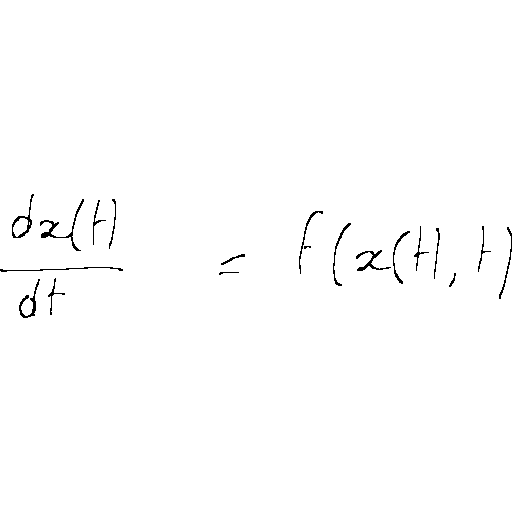 \frac{dx(t)}{dt} = f(x(t), t)